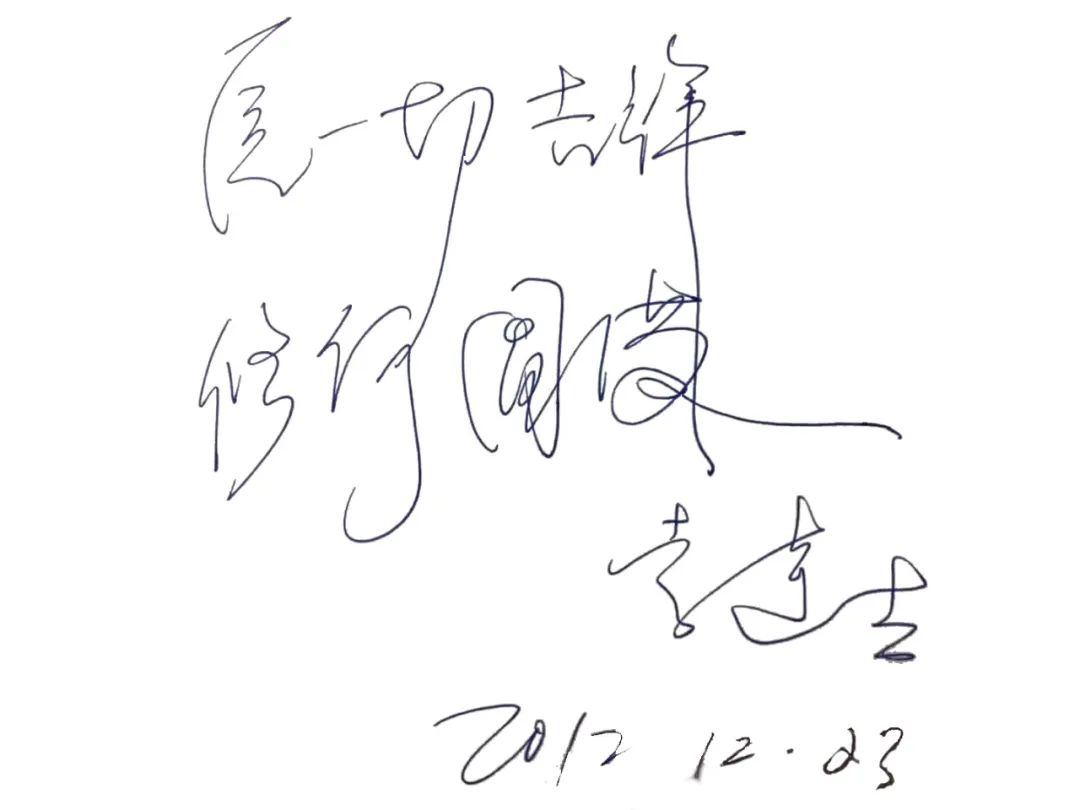 愿一切吉祥
修行圆满
2012 12.23